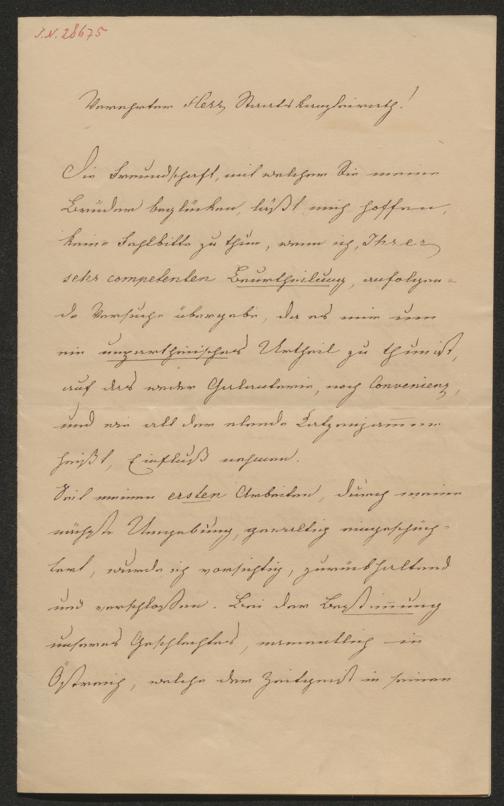 J.N. 28675
Verehrter Herr Staatskanzleirath!
Die Freundschaft, mit welcher Sie meine
Brüder beglücken, läßt mich hoffen,
keine Fehlbitte zu thun, wenn ich, Ihrer
sehr competenten Beurtheilung, anfolgen-
de Versuche übergebe, da es mir um
ein unpartheiisches Urtheil zu thun ist,
auf das weder Galanterie, noch Convenienz,
und wie all der elende Katzenjammer
heißt, Einfluß nehmen.
Seit meinen ersten Arbeiten, durch meine
nächste Umgebung, gewaltig eingeschüch-
tert, wurde ich vorsichtig, zurückhaltend
und verschlossen. Bei der Bestimmung
unseres Geschlechtes, namentlich in
Östreich, welche der Zeitgeist in seinen